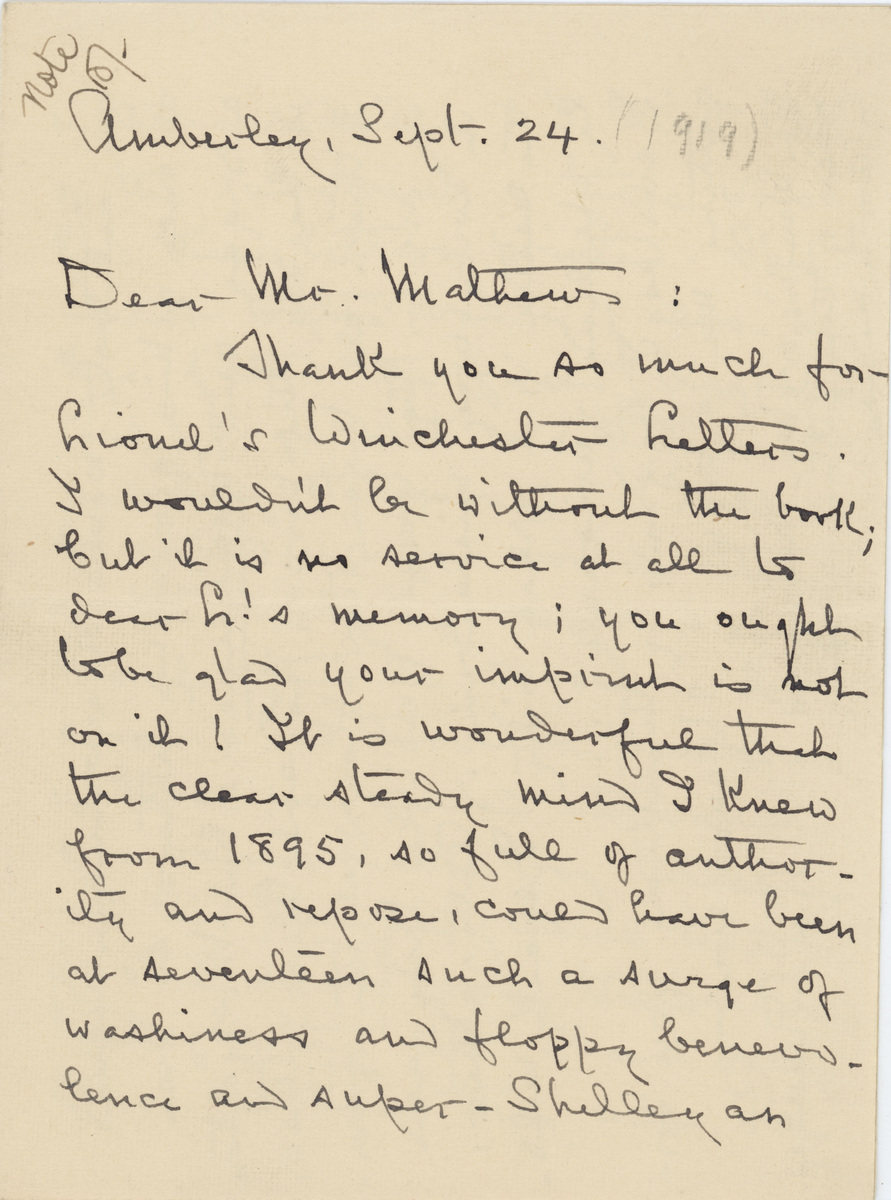 Note
by
Amberley, Sept. 24. (1919)
Dear Mr. Mathews :
Thank you so much for
Lionel's Winchester Letters.
I wouldn't be without the book;
but it is no service at all to
dear L.'s memory; you ought
to be glad your imprint is not
on it! It is wonderful that
the clear steady mind I knew
from 1895, so full of author-
ity and repose, could have been
at seventeen such a surge of
washiness and floppy benevo-
lence and super-Shelleyan